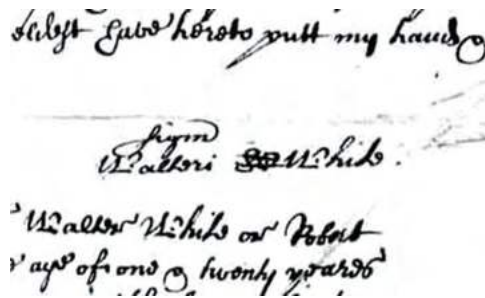 have hereto putt my hand &
signū
Walteri White.
Walter White or Robert
age of one & twenty yeares